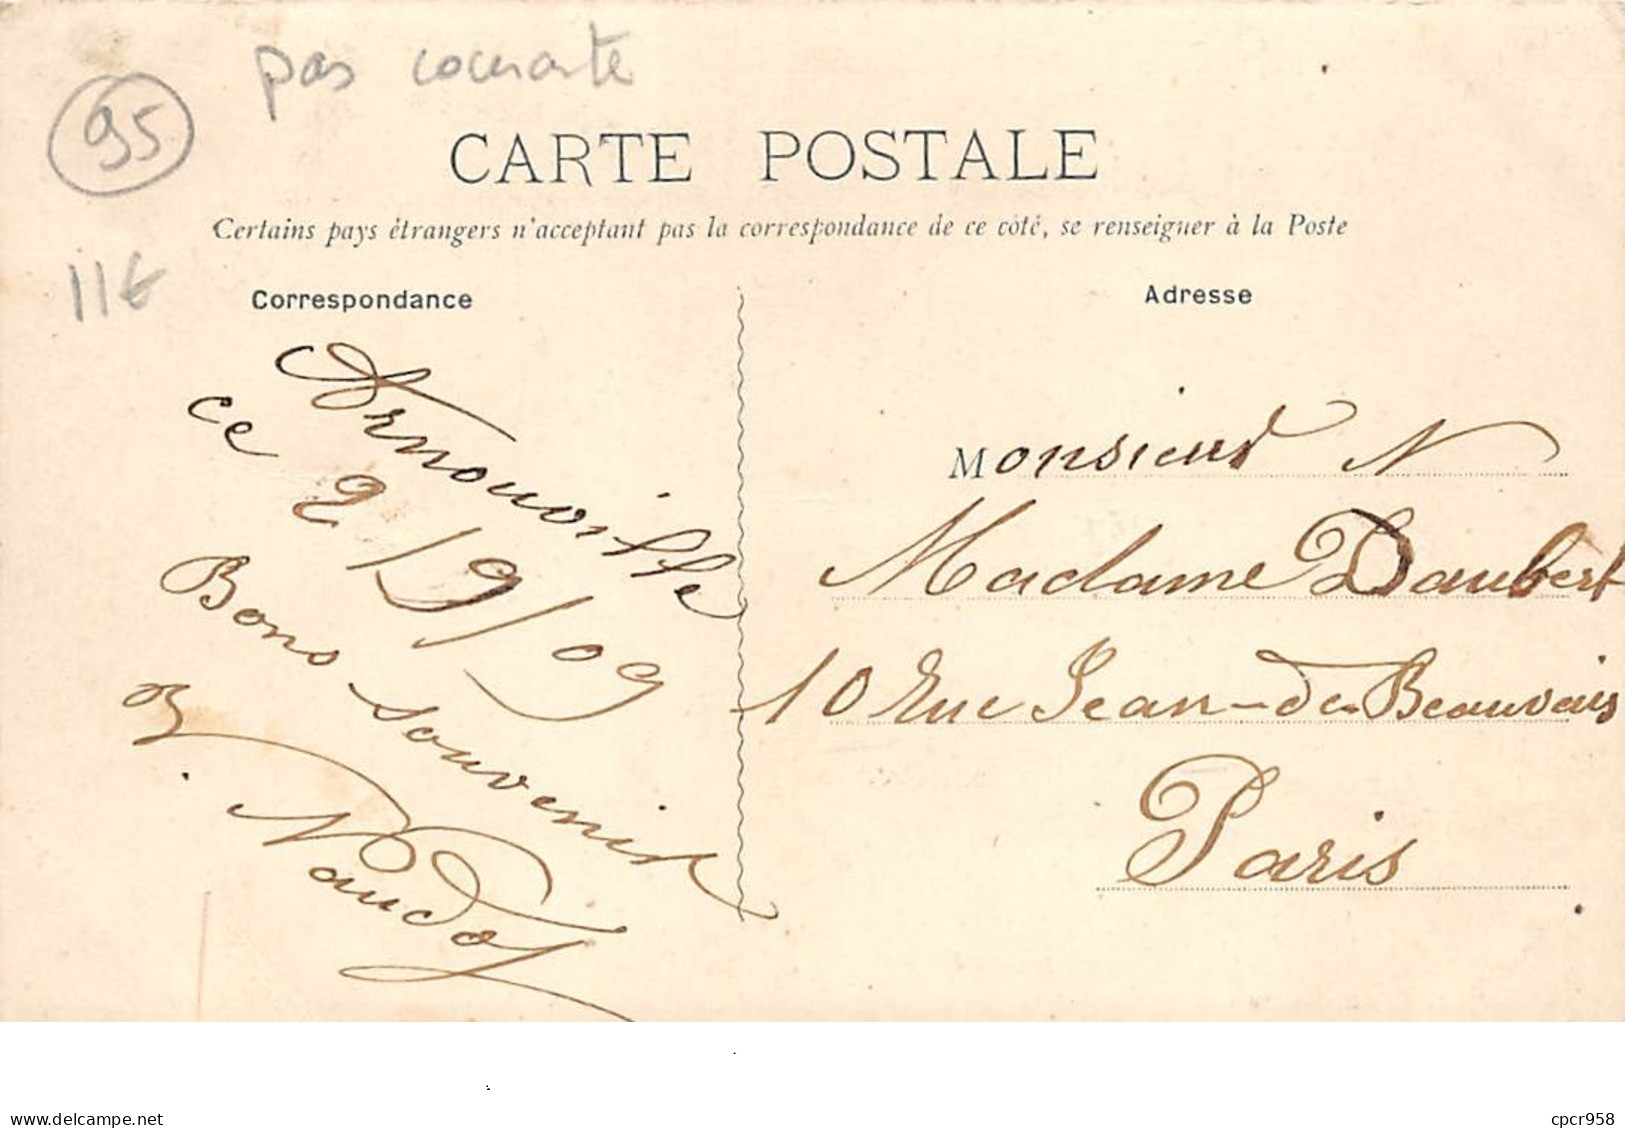 pas courante
95
CARTE POSTALE
Certains pays étrangers n'acceptant pas la correspondance de ce côté, se renseigner à la Poste
11€
Correspondance
Arnouville
ce 2/9/09
Bons souvenir
Naudot
Adresse
Monsieur
Madame Daubert
10 Rue Jean-de-Beauvais
Paris
www.delcampe.net
cpcr958